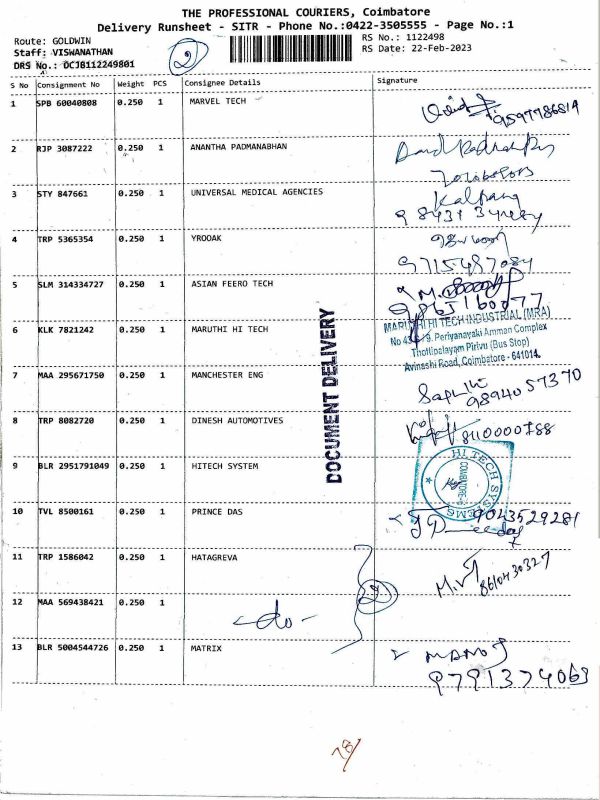 THE PROFESSIONAL COURIERS, Coimbatore
Delivery Runsheet - SITR - Phone No.:0422-3505555 - Page No.:1
Route: GOLDWIN
RS No.: 1122498
Staff: VISWANATHAN
RS Date: 22-Feb-2023
DRS No.: OCJB112249801
2
S No Consignment No Weight PCS Consignee Details Signature
1 SPB 60040808 0.250 1 MARVEL TECH
9597786819
2 RJP 3087222 0.250 1 ANANTHA PADMANABHAN
3 STY 847661 0.250 1 UNIVERSAL MEDICAL AGENCIES Kalpana
4 TRP 5365354 0.250 1 YROOAK
9715487084
5 SLM 314334727 0.250 1 ASIAN FEERO TECH
6 KLK 7821242 0.250 1 MARUTHI HI TECH
MARUTHI HI TECH INDUSTRIAL (MRA)
Periyanayaki Amman Complex
Thottipalayam Pirivu (Bus Stop)
Avinashi Road, Coimbatore - 641014.
DOCUMENT DELIVERY
7 MAA 295671750 0.250 1 MANCHESTER ENG
9894057370
8 TRP 8082720 0.250 1 DINESH AUTOMOTIVES
8110000788
9 BLR 2951791049 0.250 1 HITECH SYSTEM
HI TECH SYSTEMS
10 TVL 8500161 0.250 1 PRINCE DAS
9043529281
11 TRP 1586042 0.250 1 HATAGREVA
8610430327
12 MAA 569438421 0.250 1
-do-
2
13 BLR 5004544726 0.250 1 MATRIX
MANOJ
9791374063
78